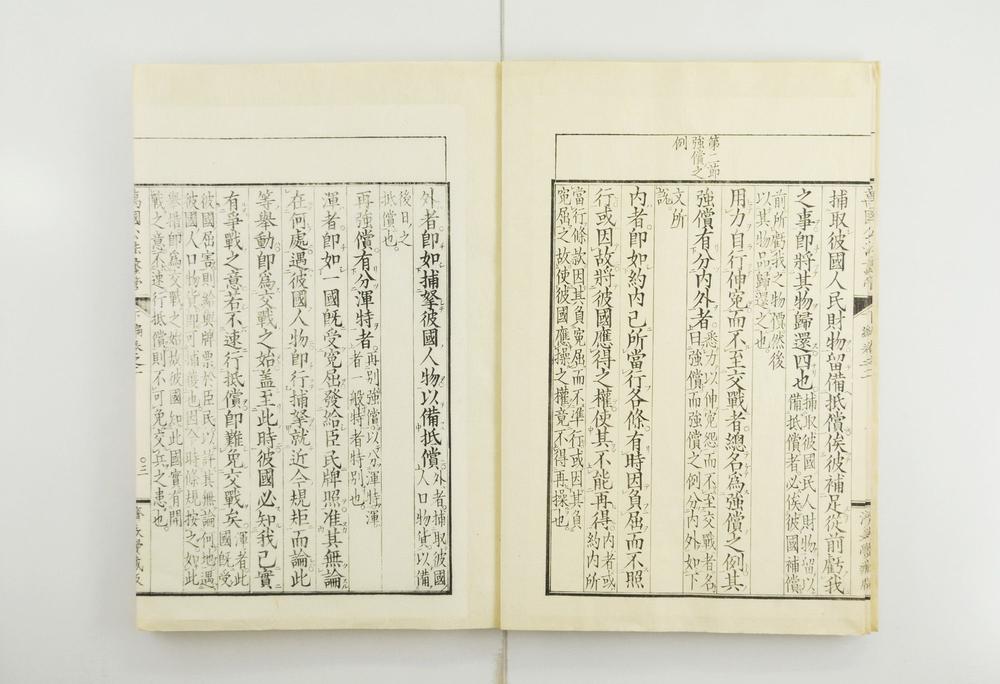 第二節
強償之
例
捕取彼國人民財物留備抵償俟彼補足從前虧我
之事即將其物歸還四也
捕取彼國人民財物留以
備抵償者必俟彼國補償
前所虧我之物價然後
以其物品歸還之也
用力自行伸冤而不至交戰者總名為強償之例其
強償有分內外者
悉力以伸冤怨而不至交戰者名
曰強償而強償之例分內外如下
文所
說
內者即如約內己所當行各條有時因負屈而不照
行或因故將彼國應得之權使其不能再得
內者或
約內所
當行條款因其負冤屈而不準行或因其負
冤屈之故使彼國應操之權竟不得再操也
外者即如捕拏彼國人物以備抵償
外者捕取彼國
人口物貨以備
後日之
抵償也
再強償有分渾特者
再別強償以分渾特渾
者一般特者特別也
渾者即如一國既受冤屈發給臣民牌照准其無論
在何處遇彼國人物即行捕拏就近今規矩而論此
等舉動即為交戰之始蓋至此時彼國必知我已實
有爭戰之意若不速行抵償即難免交戰矣
渾者此
國既受
彼國屈害則給與牌票於臣民以許其無論何地遇
彼國人口物貨即可捕獲也因今時條規按之如此
舉措即為交戰之始故彼國知此國實有開
戰之意不速行抵償則不可免交兵之患也
萬國公法蠡管